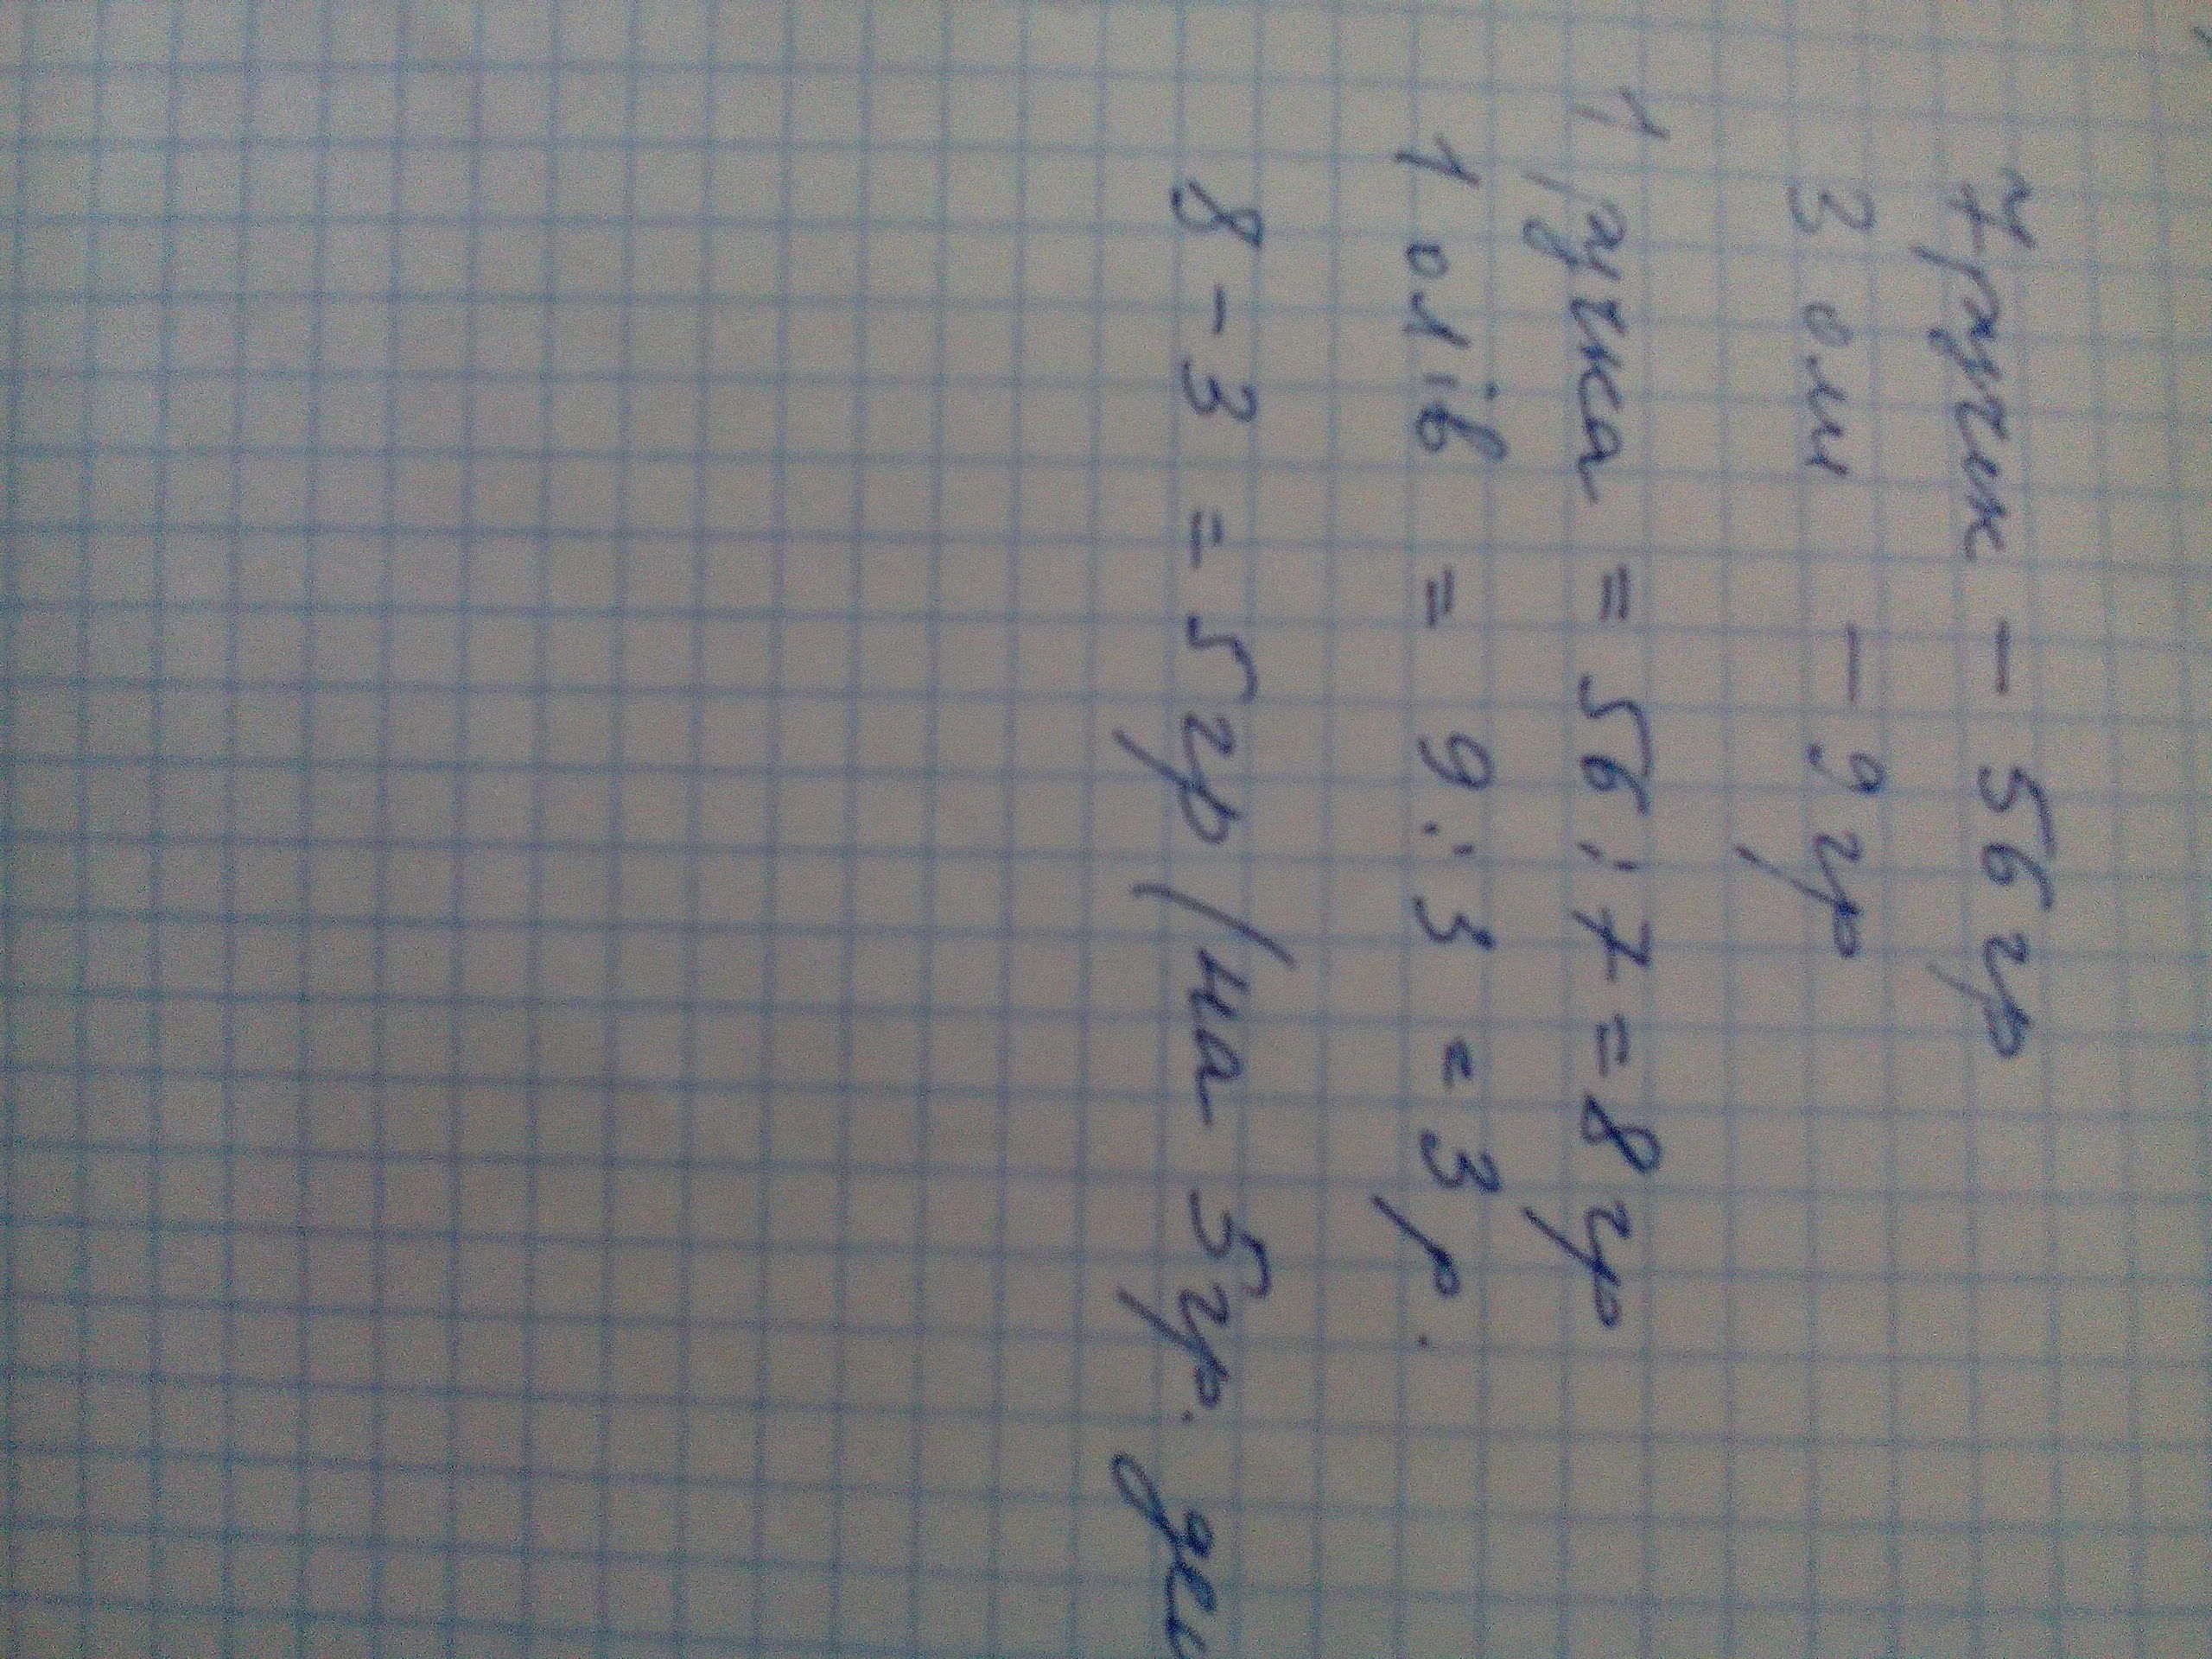 7 ручек - 56 гр
3 оли - 9 гр
1 ручка = 56 : 7 = 8 гр
1 олів = 9 : 3 = 3 р.
8 - 3 = 5 гр (на 5 гр. де